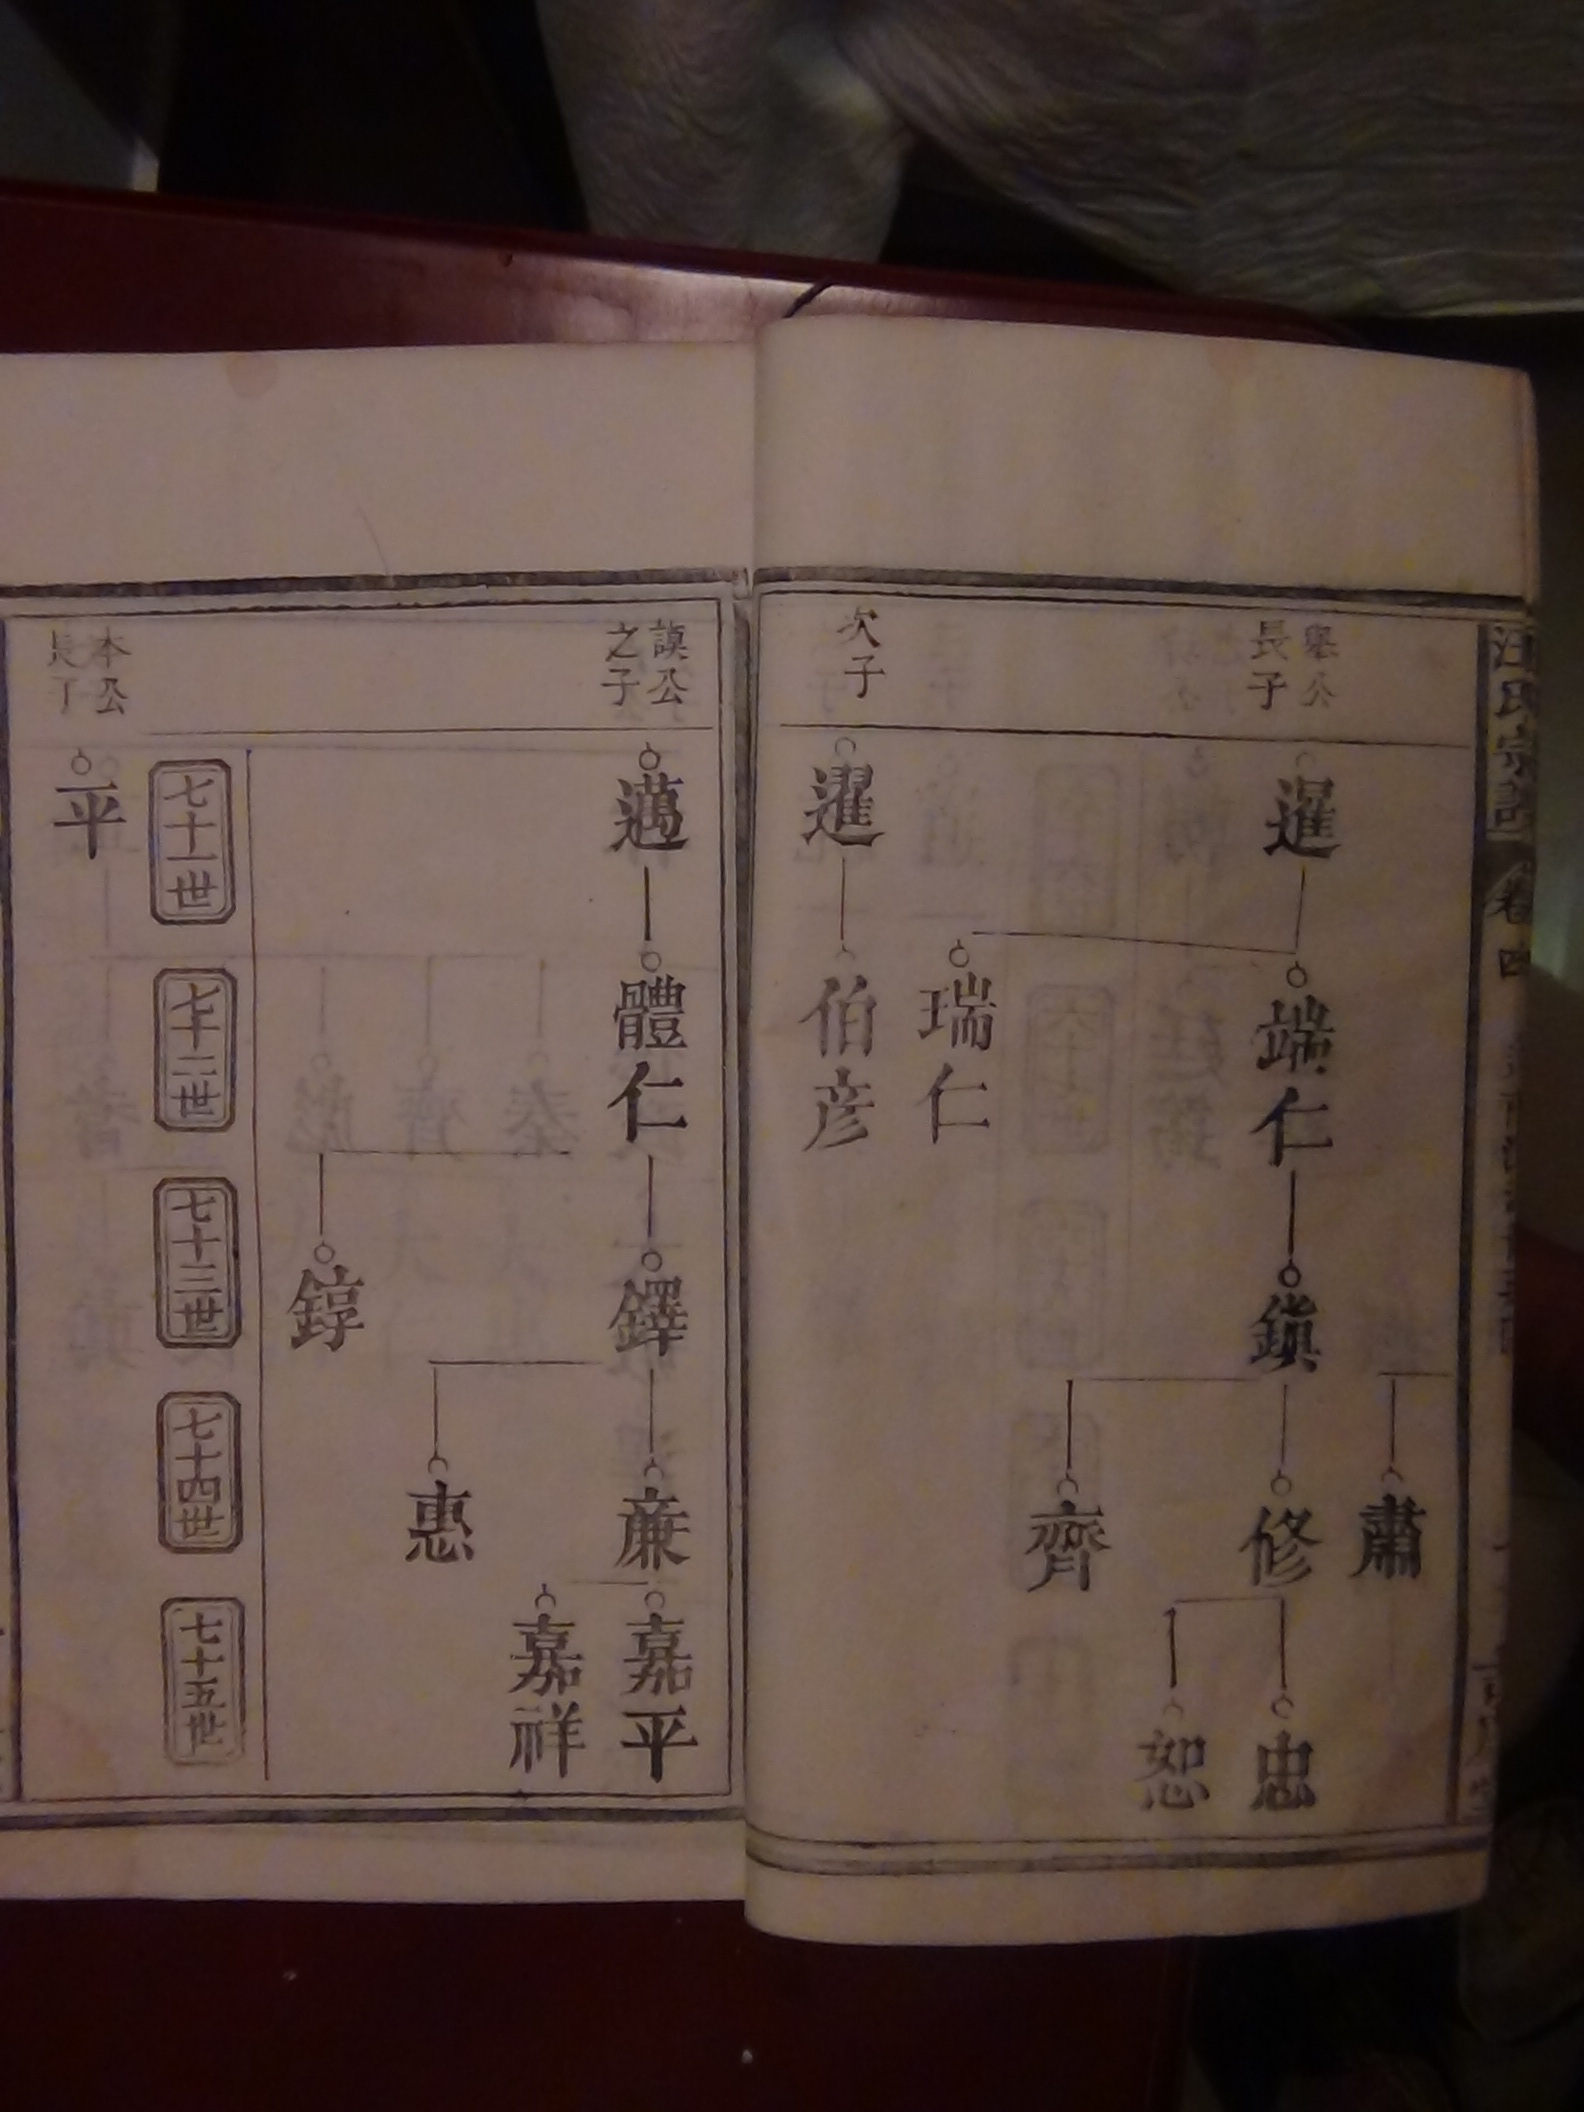 汪氏宗譜
卷四
舉公
長子
暹
端仁
瑞仁
鎮
肅
修
齊
忠
恕
次子
暹
伯彦
謨公
之子
邁
體仁
鐸
錞
廉
惠
嘉平
嘉祥
七十一世
七十二世
七十三世
七十四世
七十五世
本公
長子
平